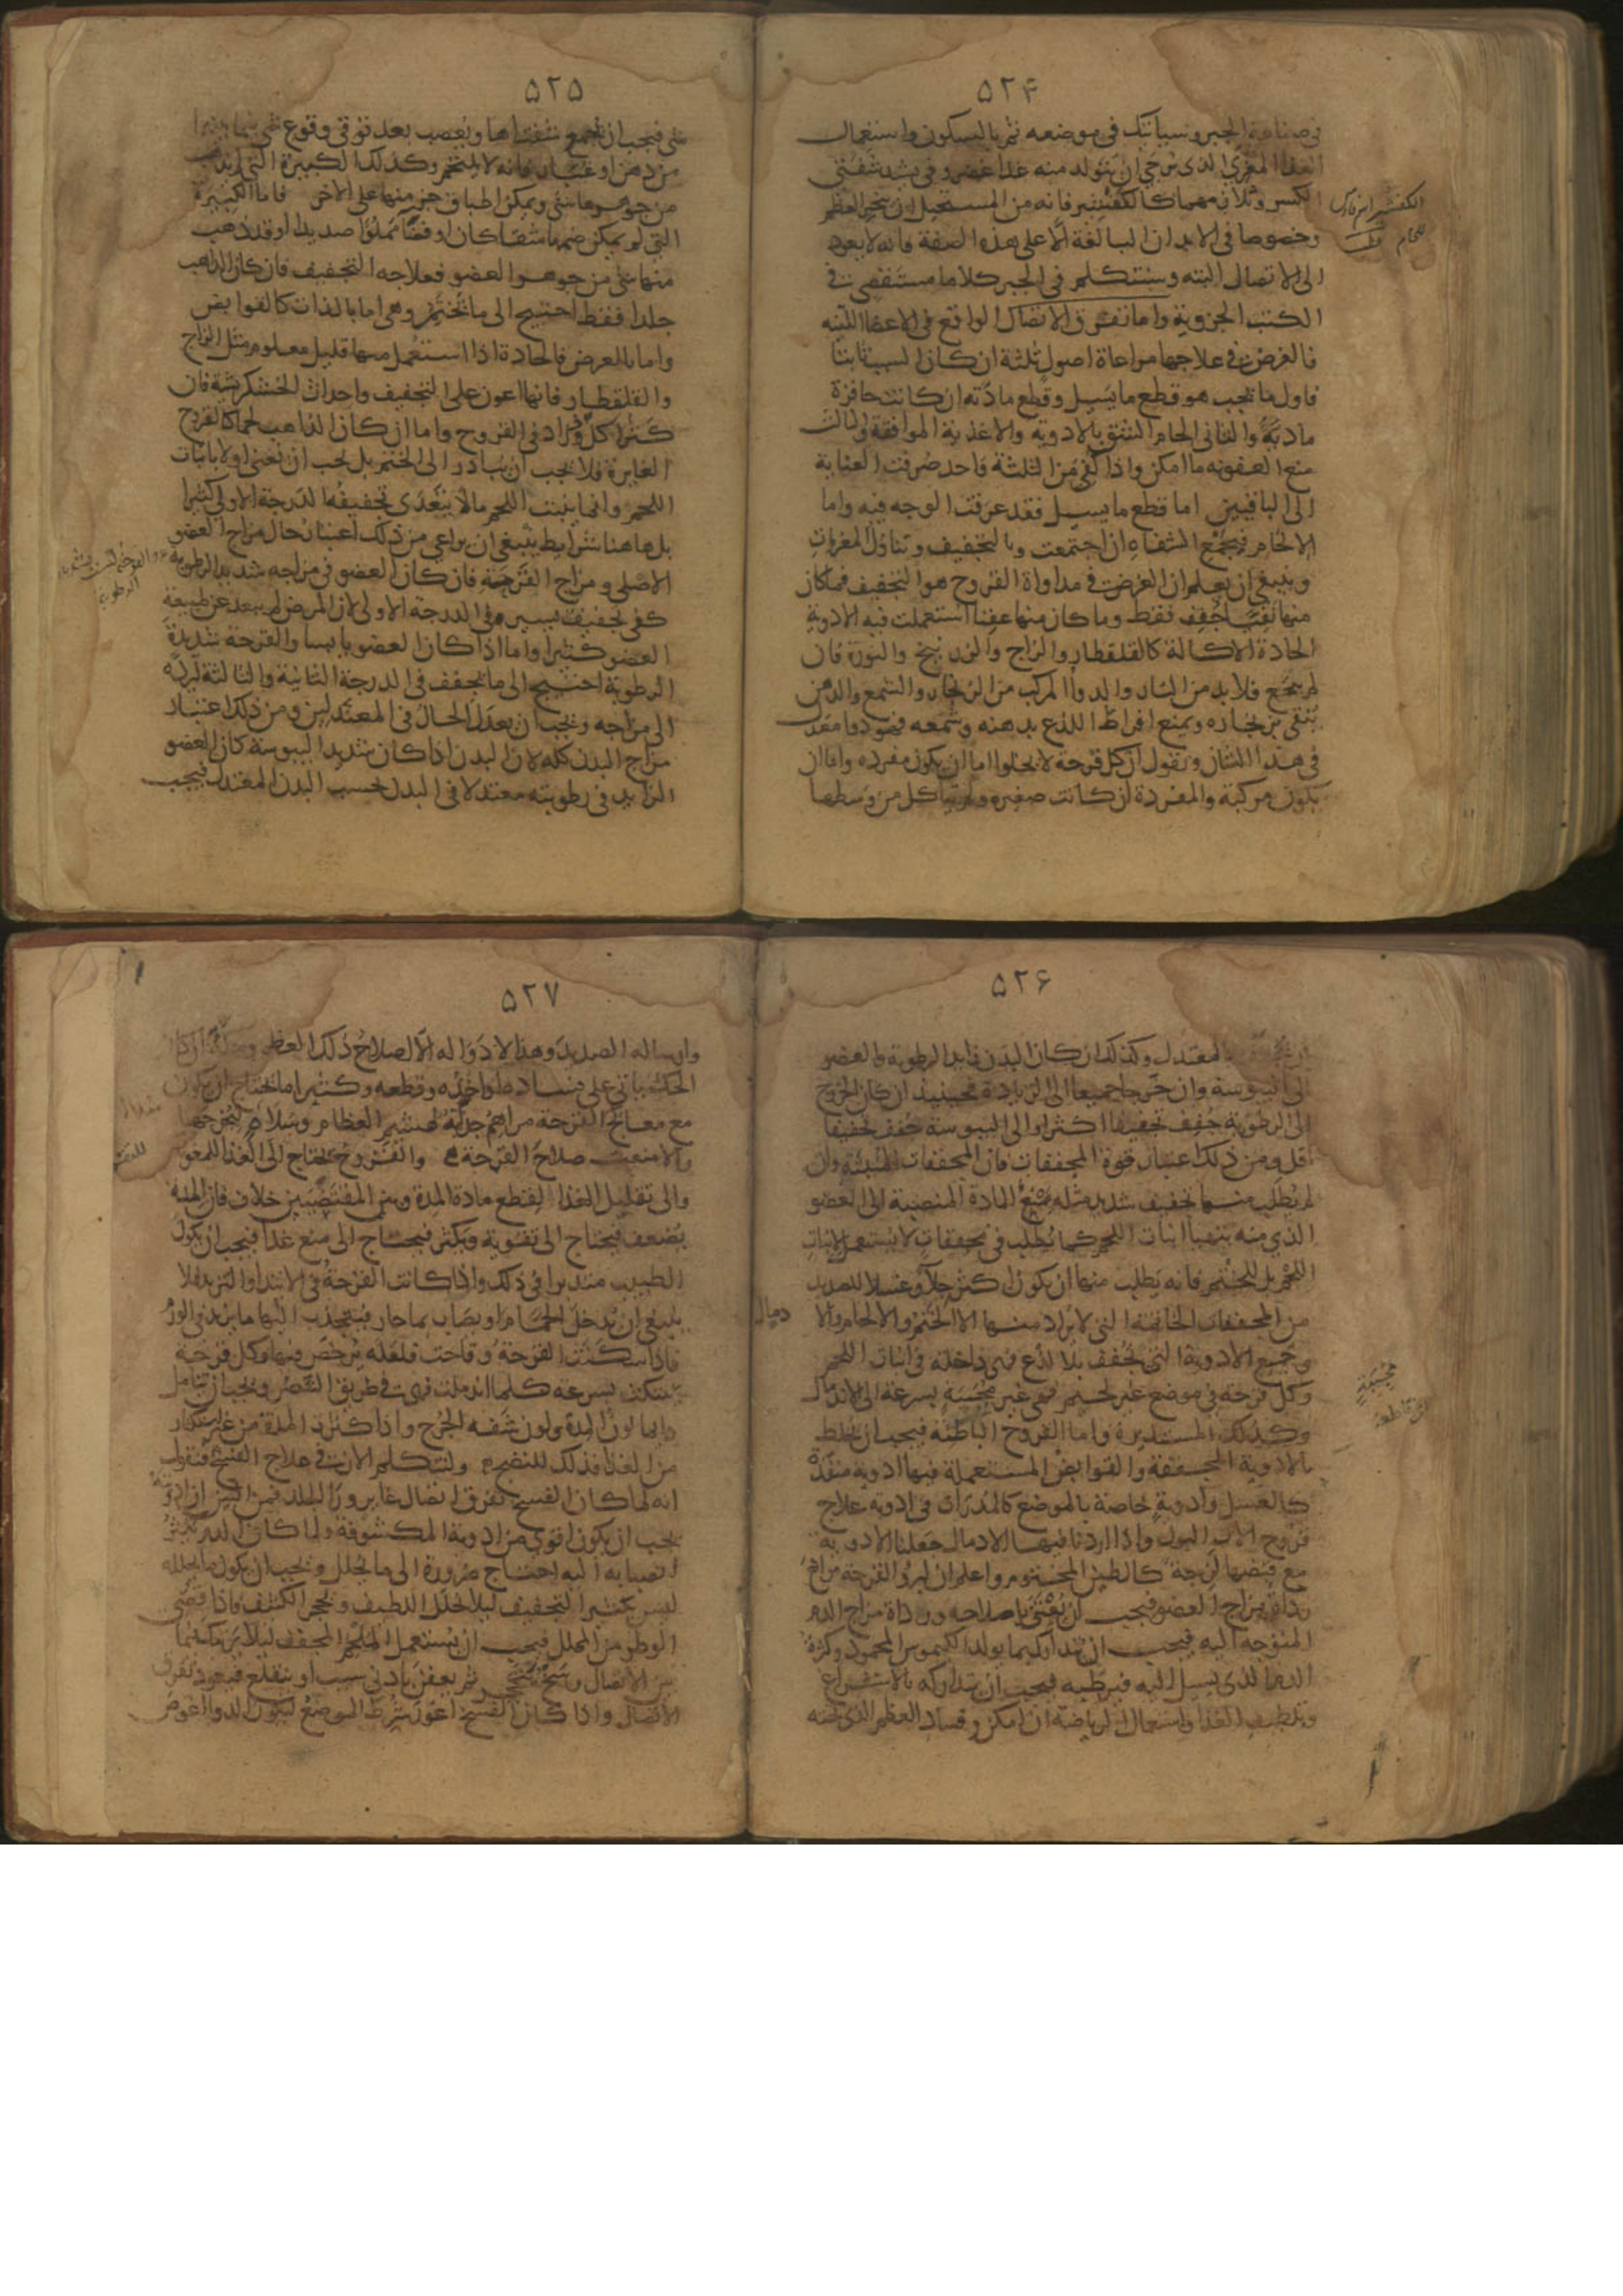 ۵۲۴
في صناعة الجبر وسياتيك في موضعه ثم بالسكون واستعمال
الغذا المغري الذي يرجي ان يتولد منه غذا غضروفي يشد شفتي
الكسر ويلائمهما كالكفشير فانه من المستحيل ان ينجبر العظم
وخصوصا في الابدان البالغة الا على هذه الصفة فانه لا يعود
الى الاتصال البته وسنتكلم في الجبر كلاما مستقصي في
الكتب الجزوية واما تفرق الاتصال الواقع في الاعضا اللينه
فالغرض في علاجها مراعاة اصول ثلثة ان كان السبب ثابتا
فاول ما يجب هو قطع ما يسيل وقطع مادته ان كانت
مادية والثاني الحام الشق بالادوية والاغذية الموافقة والثالث
منع العفونه ما امكن واذا كفي من الثلثة واحد صرفت العناية
الى الباقيين اما قطع ما يسيل فقد عرفت الوجه فيه واما
الالحام فبجمع الشفاه ان اجتمعت وبالتجفيف وتناول المغريات
وينبغي ان يعلم ان الغرض في مداواة القروح هو التجفيف فما كان
منها نقيا جفف فقط وما كان منها عفنا استعملت فيه الادوية
الحادة الاكالة كالقلقطار والزاج والزرنيخ والنورة فان
لم ينجع فلا بد من النار والدوا المركب من الزنجار والشمع والدهن
ينقي بزنجاره ويمنع افراط اللذع بدهنه وشمعه فهو دوا معتدل
في هذا الشان ونقول ان كل قرحة لا يخلوا اما ان يكون مفرده واما ان
يكون مركبة والمفردة ان كانت صغيره ولم يتاكل من وسطها
الكفشير
۵۲۵
شي فيجب ان يجمع شفتاها ويعصب بعد توقي وقوع شي فيما بينهما
من دهن او غبار فانه لا يلتحم وكذلك الكبيرة التي لم يذهب
من جوهرها شي ويمكن اطباق جزء منها على الاخر فاما الكبيرة
التي لم يمكن ضمها شقا كان او فضا مملوا صديدا او قد ذهب
منها شي من جوهر العضو فعلاجه التجفيف فان كان الذاهب
جلدا فقط احتيج الى ما يختم وهي اما بالذات كالقوابض
واما بالعرض فالحادة اذا استعمل منها قليل معلوم مثل الزاج
والقلقطار فانها اعون على التجفيف واحداث الخشكريشة فان
كثر اكل وزاد في القروح واما ان كان الذاهب لحما كالقروح
الغايرة فلا يجب ان يبادر الى الختم بل يجب ان يعتني اولا بانبات
اللحم وانما ينبت اللحم ما لا يتعدي تجفيفه الدرجة الاولي كثيرا
بل هاهنا شرايط ينبغي ان يراعي من ذلك اعتبار حال مزاج العضو
الاصلي ومزاج القرحة فان كان العضو في مزاجه شديد الرطوبة
كفي تجفيف يسير في الدرجة الاولي لان المرض لم يبعد عن طبيعة
العضو كثيرا واما اذا كان العضو يابسا والقرحة شديدة
الرطوبة احتيج الى ما يجفف في الدرجة الثانية والثالثة ليرده
الى مزاجه ويجب ان يعدل الحال في المعتدلين ومن ذلك اعتبار
مزاج البدن كله لان البدن اذا كان شديد اليبوسة كان العضو
الزايد في رطوبته معتدلا في البدن بحسب البدن المعتدل فيجب
۵۲۶
المعتدل وكذلك ان كان البدن زايد الرطوبة والعضو
الى اليبوسة وان خرجا جميعا الى الزيادة فحينيذ ان كان الخروج
الى الرطوبة جفف تجفيفا اكثر او الى اليبوسة جفف تجفيفا
اقل ومن ذلك اعتبار قوة المجففات فان المجففات المنبتة وان
لم يطلب منها تجفيف شديد مثله يمنع المادة المنصبة الى العضو
الذي منه يتهيا انبات اللحم كما يطلب في مجففات لا يستعمل لانبات
اللحم بل للختم فانه يطلب منها ان يكون اكثر جلآ وغسلا للصديد
من المجففات الخاتمة التي لا يراد منها الا الختم والالحام والا
دمال
وجميع الادوية التي تجفف بلا لذع فهي داخلة في انبات اللحم
وكل قرحة في موضع غير لحيم فهي غير مجيبة بسرعة الى الاندمال
وكذلك المستديرة واما القروح الباطنه فيجب ان يخلط
بالادوية المجففة والقوابض المستعملة فيها ادوية منفذة
كالعسل وادوية خاصة بالموضع كالمدرات في ادوية علاج
قروح الات البول واذا اردنا فيها الادمال جعلنا الادوية
مع قبضها لزجة كالطين المختوم واعلم ان لبرؤ القرحة موانع
رداة مزاج العضو فيجب ان يعتني باصلاحه ورداة مزاج الدم
المتوجه اليه فيجب ان يتداركه بما يولد الكيموس المحمود وكثرة
الدم الذي يسيل اليه فيرطبه فيجب ان يتداركه بالاستفراغ
وتلطيف الغذا واستعمال الرياضة ان امكن وفساد العظم الذي تحته
۵۲۷
وارساله الصديد وهذا لا دوا له الا اصلاح ذلك العظم وحكه ان كان
الحك ياتي على فساده او اخذه وقطعه وكثيرا ما يحتاج ان يكون
مع معالج القرحة مراهم جذابة لهشيم العظام وسلاه ليخرجها
والا منعت صلاح القرحة والقروح يحتاج الى الغذا للتقوية
والى تقليل الغذا لقطع مادة المدة وبين المقتضيين خلاف فان المدة
يضعف فيحتاج الى تقوية ويكثر فيحتاج الى منع غذا فيجب ان يكون
الطبيب متدبرا في ذلك واذا كانت القرحة في الابتدا والتزيد فلا
ينبغي ان يدخل الحمام او يصاب بما حار فينجذب اليها ما يزيد في الورم
فاذا سكنت القرحة وقاحت فلعله يرخص فيها وكل قرحة
ينتكث بسرعة كلما اندملت فهي في طريق التنصر ويجب ان يتامل
دايما لون المدة ولون شفه الجرح واذا كثرت المدة من غير استكثار
من الغذا فذلك للنضج ولنتكلم الان في علاج الفسخ فنقول
انه لما كان الفسخ تفرق اتصال غاير ورا الجلد فمن البين ان ادويته
يجب ان يكون اقوي من ادوية المكشوفة ولما كان الدم يكثر
انصبابه اليه احتاج ضرورة الى ما يحلل ويجب ان يكون ما يحلله
ليس بكثير التجفيف ليلا يحلل اللطيف ويحجر الكثيف فاذا قضي
الوطر من المحلل فيجب ان يستعمل الملحم المجفف ليلا يرتبك فيما
بين الاتصال وسخ يتحجر ثم يعفن بادني سبب او ينقلع فيعود تفرق
الاتصال واذا كان الفسخ اغور شرط الموضع ليكون الدوا اغوص